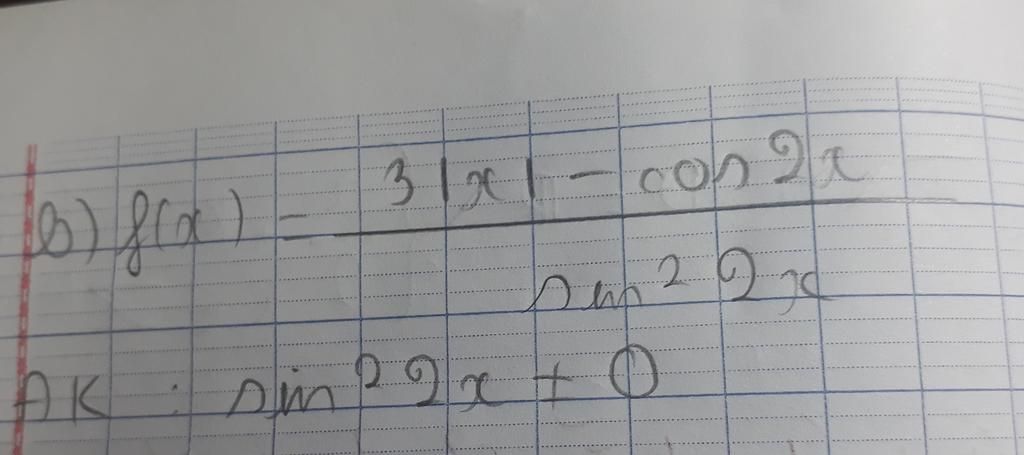 b) f(x) = (3|x| - cos2x) / (sin² 2x)
ĐK : sin² 2x ≠ 0